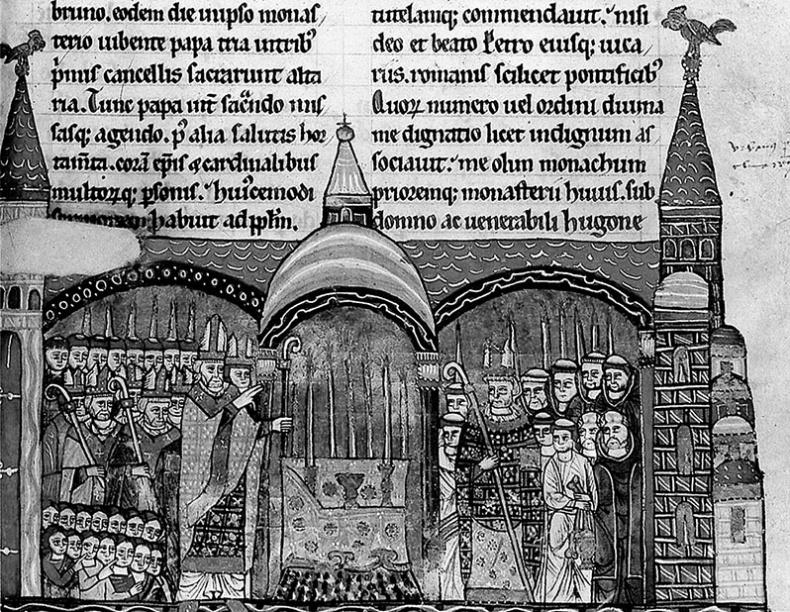 bruno. eodem die in ipso monas
terio iubente papa tria in tribꝰ
p̄mis cancellis sacrarunt alta
ria. Tunc papa int̄ sac̄ndo mis
sasq; agendo. p̄ alia salutis hor
tam̄ta. corā ep̄is ⁊ cardinalibus
multorꝗ; p̄sonis. huiuscemodi
habuit ad pplm̄.
tutelamq; commendauit. nisi
deo et beato Petro eiusq; uica
riis. romanis scilicet pontificibꝰ
Quoꝝ numero uel ordini diuina
me dignatio licet indignum as
sociauit. me olim monachum
prioremq; monasterii huius. sub
domno ac uenerabili hugone